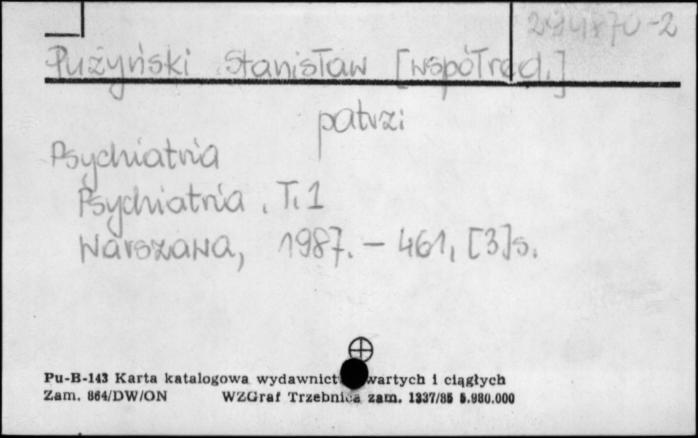 294870-2
Pużyński Stanisław [współred.]
patrz:
Psychiatria
Psychiatria. T. 1
Warszawa, 1987. - 461, [3] s.
Pu-B-143 Karta katalogowa wydawnict wartych i ciągłych
Zam. 864/DW/ON WZGraf Trzebnica zam. 1337/85 5.980.000